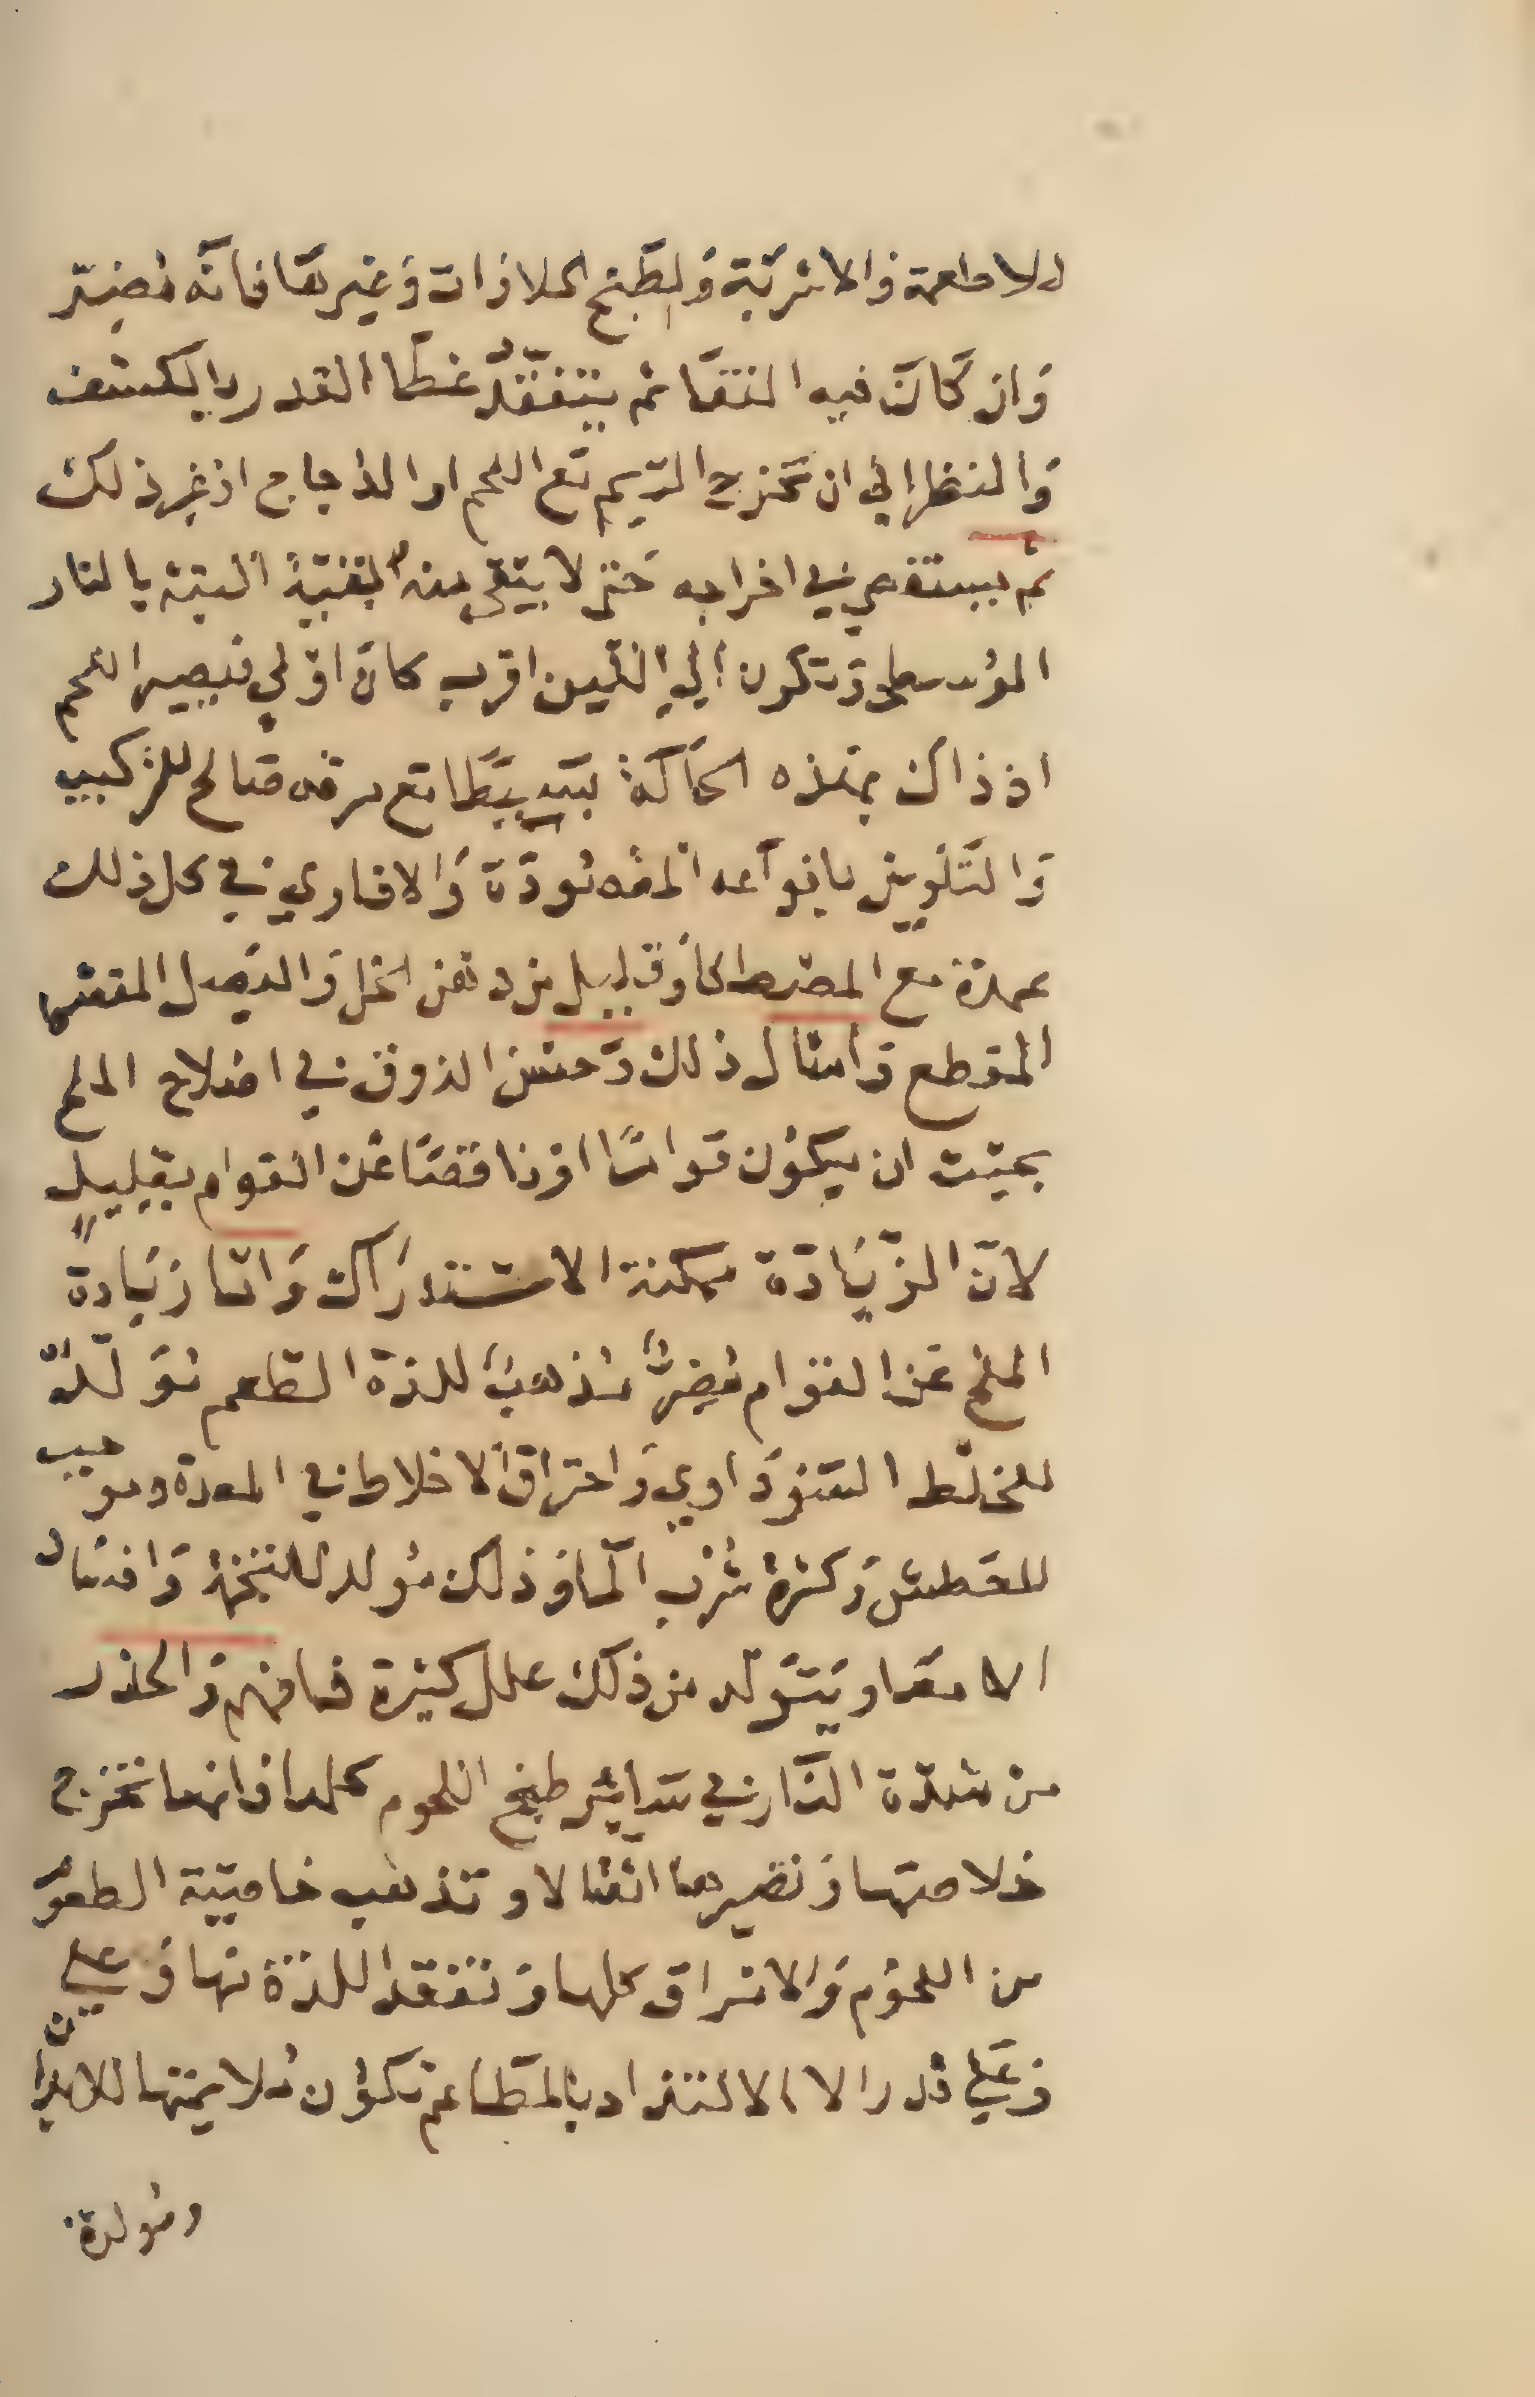 للاطعمة والاشربة ولطبخ الحلاوات وغيرها فانه مضر
وان كان فيه المنقا ثم يتفقد غطا القدر بالكشف
والنظر الي ان تخرج الريم مع اللحم او الدجاج او غير ذلك
ثم يستقصي في اخراجه حتي لا يبقي منه بقية البتة بالنار
الموسطي وتكون الي اللين اقرب كان اولي فيصير اللحم
اذ ذاك بهذه الحالة مع مرقه صالح للتركيب
والتلوين بانواعه والافاوي في كل ذلك
عمدة مع المصطكا وقليل من دهن الخل والبصل المقشر
المقطع وامثال ذلك وحسن الذوق في اصلاح الملح
بحيث ان يكون قواما او ناقصا عن القوام بقليل
لان الزيادة ممكنة الاستدراك واما زيادة
الملح عن القوام مضر مذهب للذة الطعم مولد
للخلط السوداوي واحتراق الاخلاط في المعدة وموجب
للعطش وكثرة شرب الما وذلك مولد للتخمة وافساد
الامعا ويتولد من ذلك علل كثيرة فافهم والحذر
من شدة النار في ساير طبخ اللحوم كلها فانها تخرج
خلاصتها وتصيرها اثفالا وتذهب خاصية الطعم
من اللحوم والامراق كلها وتفقد اللذة منها
وعلي قدر الا الالتذاذ بالمطاعم تكون ملايمتها للابدان
ومولدة